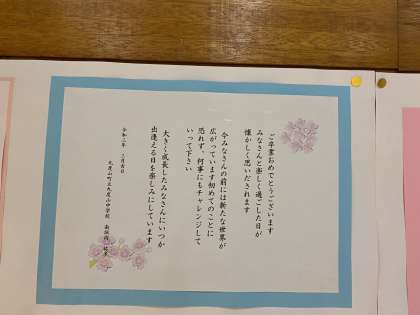 ご卒業おめでとうございます
みなさんと楽しく過ごした日が
懐かしく思いだされます
今みなさんの前には新たな世界が
広がっています初めてのことに
恐れず、何事にもチャレンジして
いって下さい
大きく成長したみなさんにいつか
出逢える日を楽しみにしています
令和二年 三月吉日